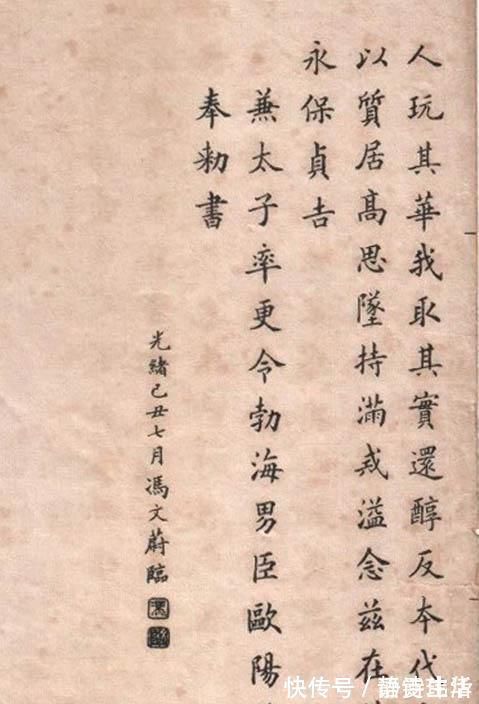 人玩其華我取其實還醇反本代
以質居高思墜持滿戒溢念兹在
永保貞吉
兼太子率更令勃海男臣歐陽
奉勑書
光緒己丑七月馮文蔚臨
快传号／静